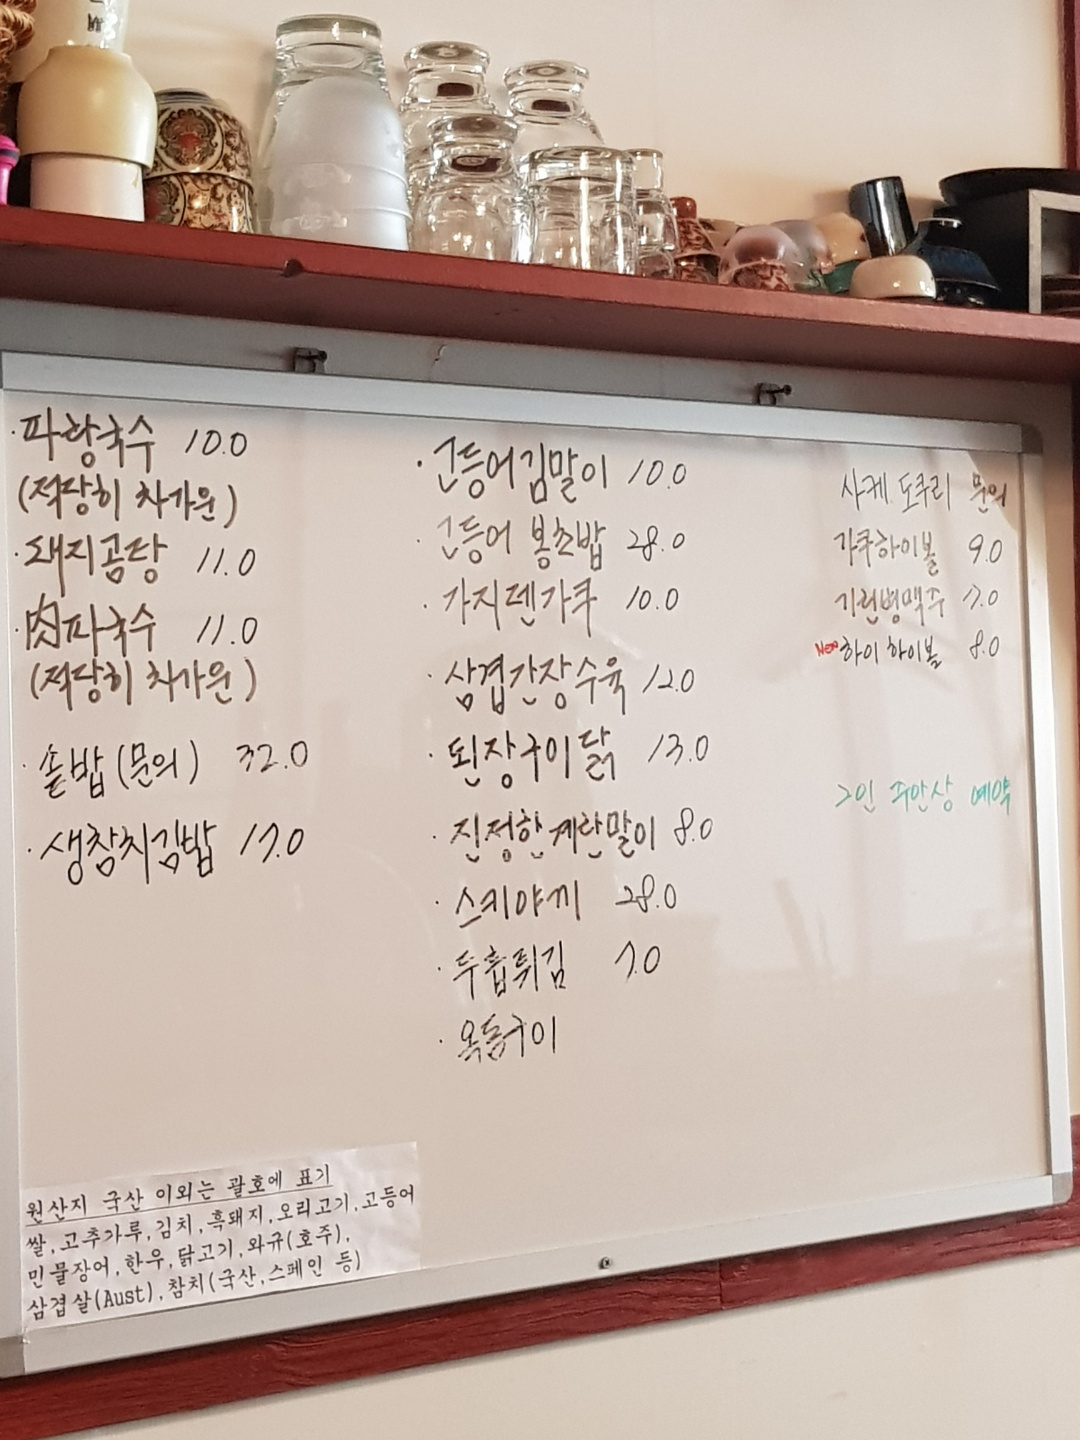 ·파랑국수 10.0
(적당히 차가운)
·돼지곰탕 11.0
·肉파국수 11.0
(적당히 차가운)
·솥밥(문의) 32.0
·생참치김밥 17.0
·고등어김말이 10.0
·고등어 봉초밥 28.0
·가지덴가쿠 10.0
·삼겹간장수육 12.0
·된장구이닭 13.0
·진정한계란말이 8.0
·스키야끼 28.0
·두흡튀김 7.0
·옥돔구이
사케 도쿠리 문의
가쿠하이볼 9.0
기린병맥주 7.0
New 하이하이볼 8.0
2인 주안상 예약
원산지 국산 이외는 괄호에 표기
쌀,고추가루,김치,흑돼지,오리고기,고등어
민물장어,한우,닭고기,와규(호주),
삼겹살(Aust),참치(국산,스페인 등)